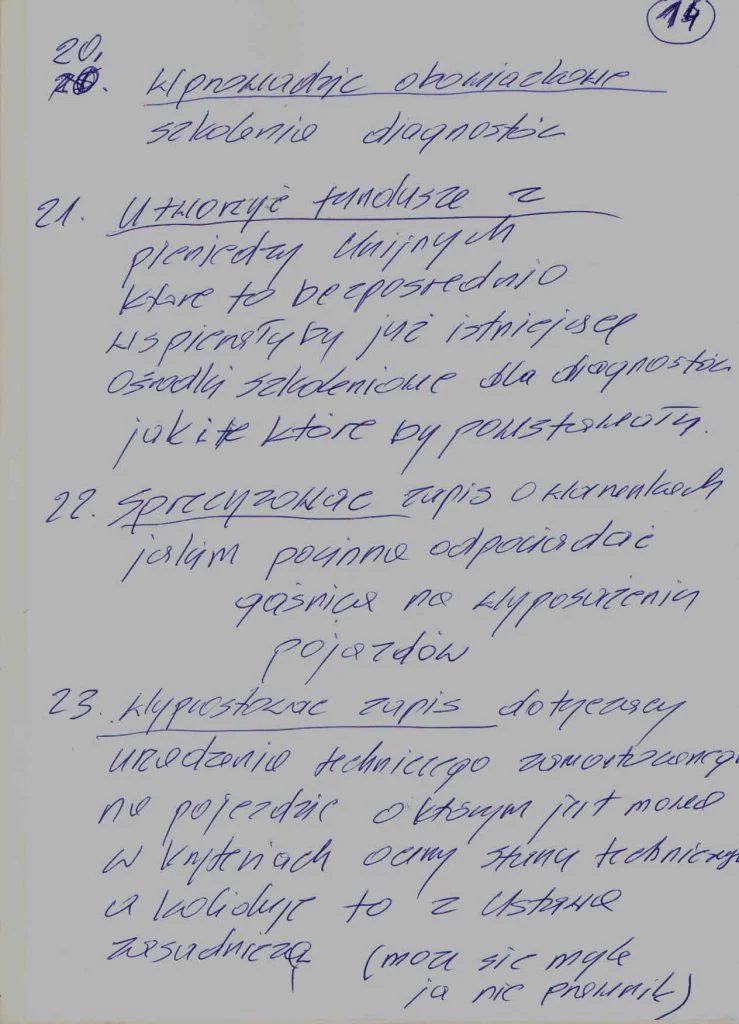 14
20.
Wprowadzić obowiązkowe
szkolenie diagnostów
21. Utworzyć fundusze z
pieniędzy Unijnych
które to bezpośrednio
wspierałyby już istniejące
Ośrodki szkoleniowe dla diagnostów
jak i te które by powstawały.
22. Sprecyzować zapis o warunkach
jakim powinna odpowiadać
gaśnica na wyposażeniu
pojazdów
23. Wyprostować zapis dotyczący
urządzenia technicznego zamontowanego
na pojeździe o którym jest mowa
w kryteriach oceny stanu technicznego
a koliduje to z Ustawą
zasadniczą (może się mylę
ja nie prawnik)